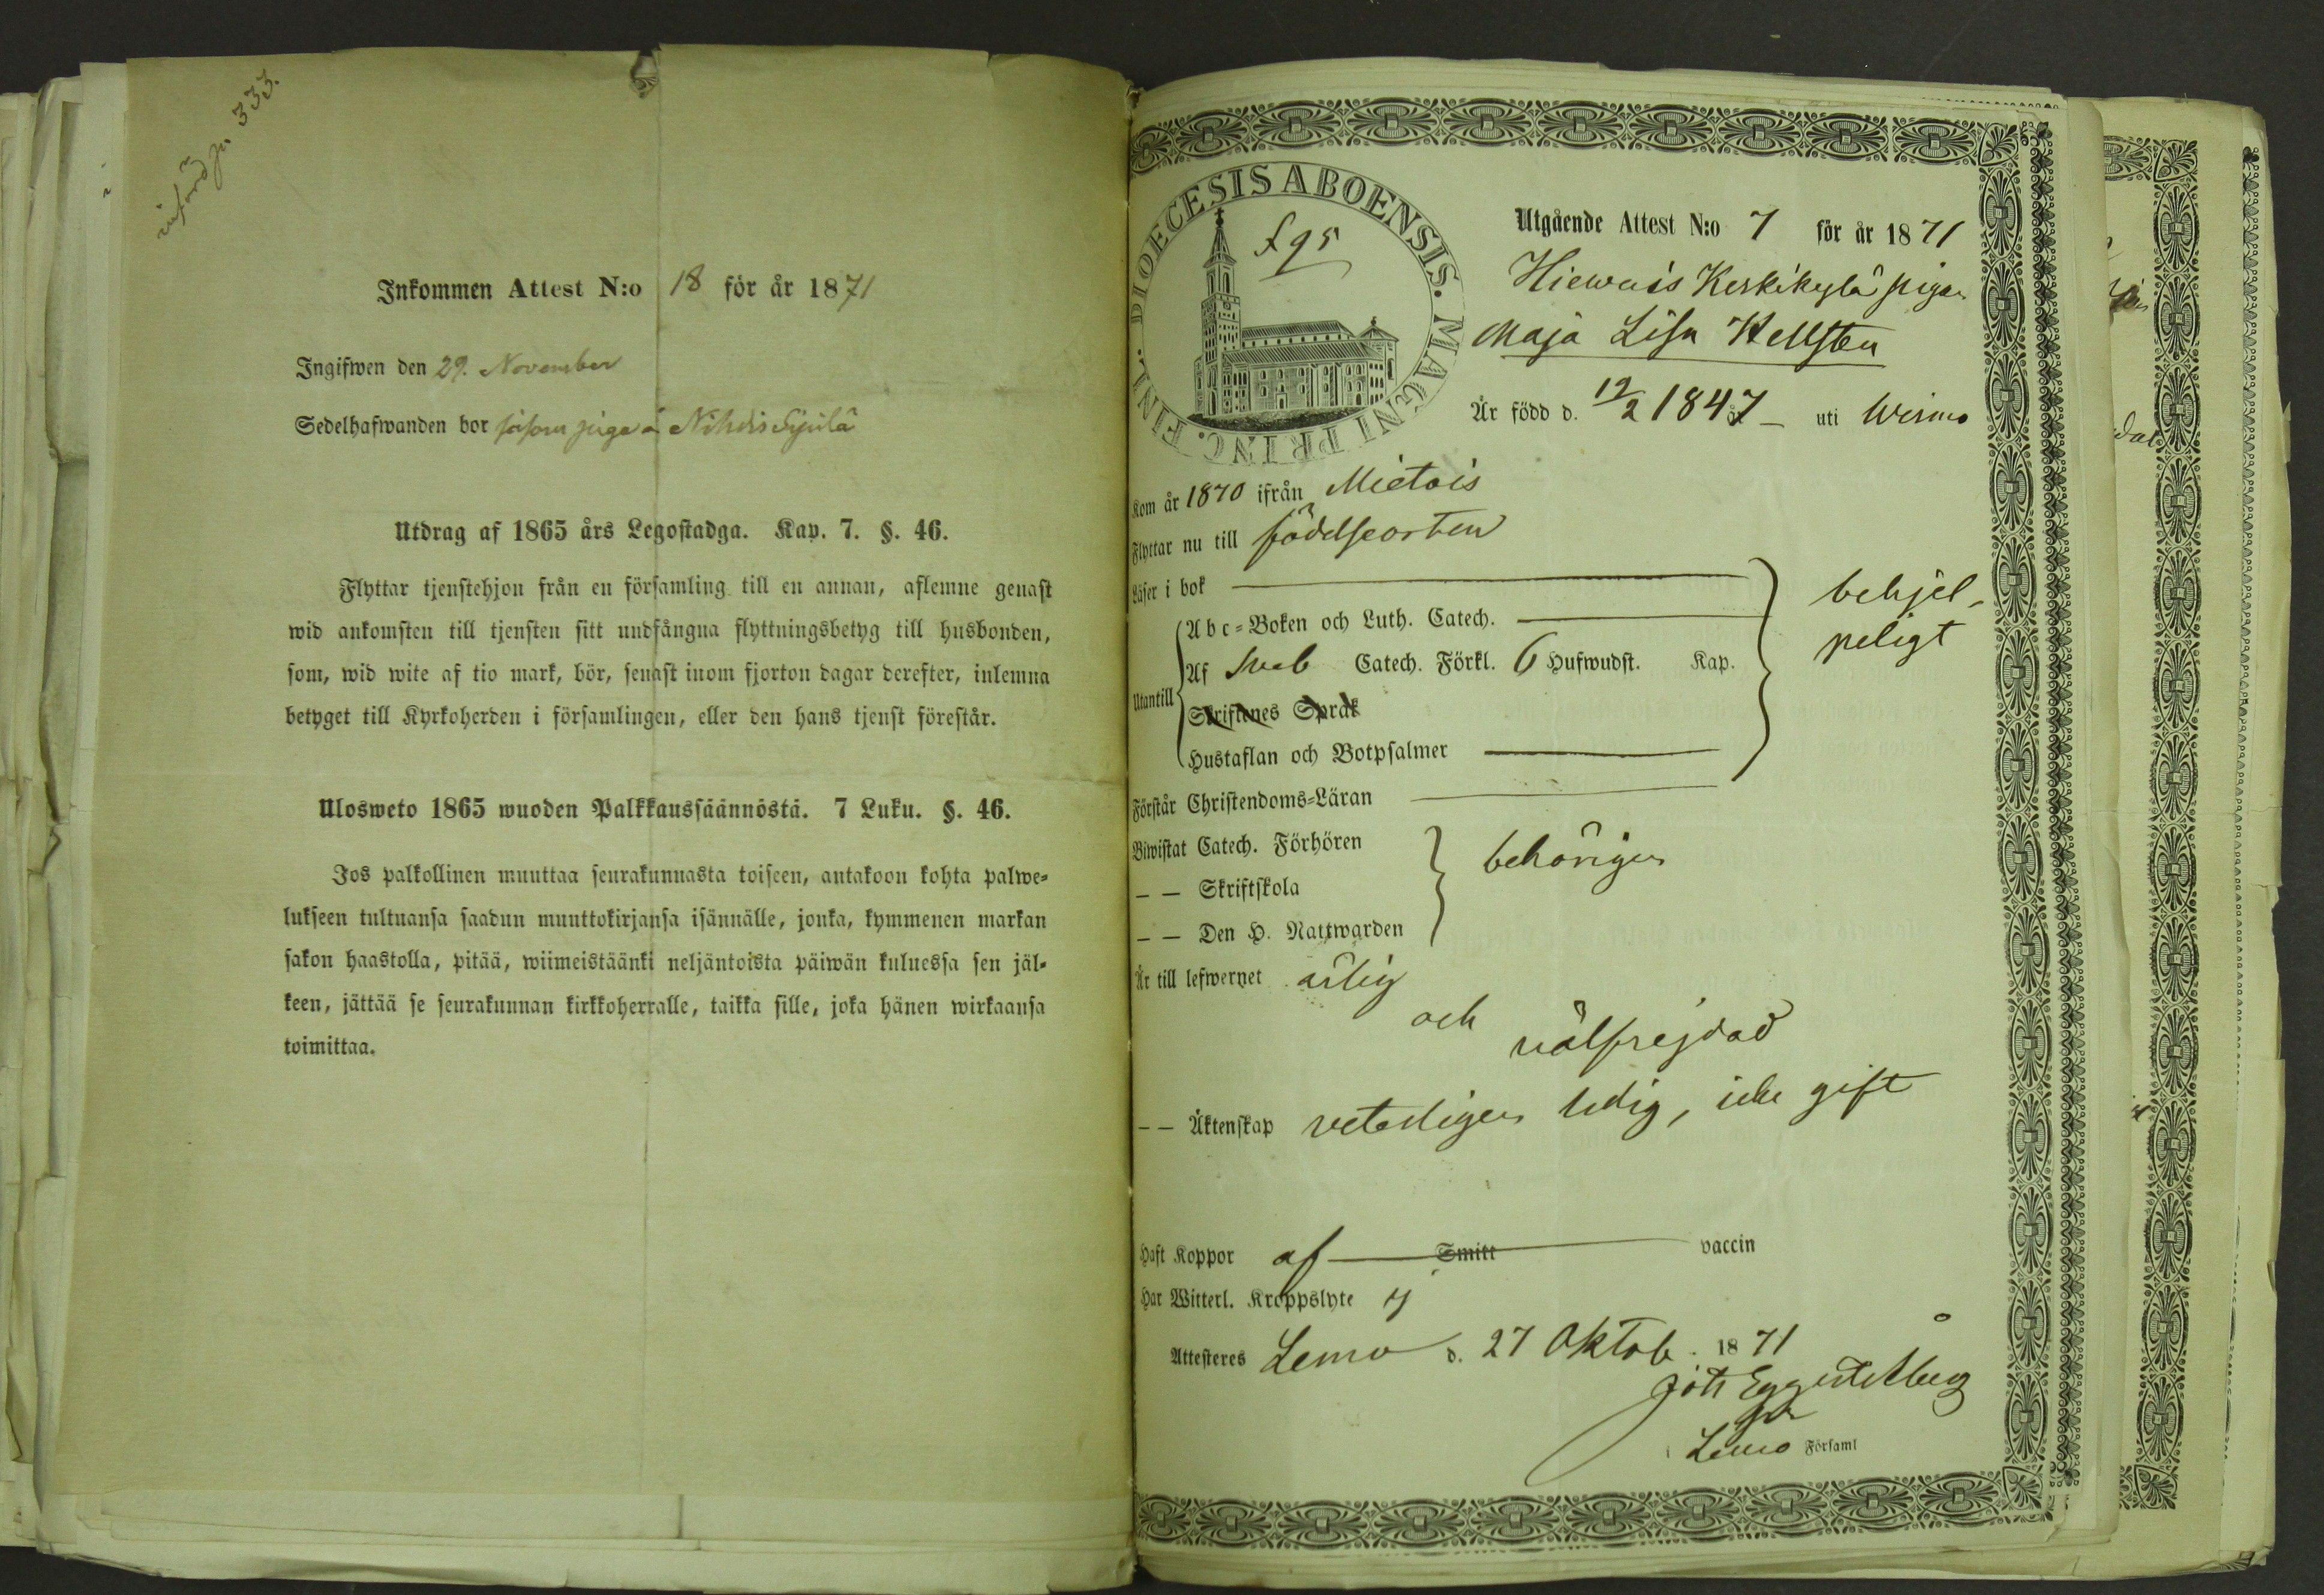 införd p. 333.
Inkommen Attest N:o 18 för år 1871
Ingifwen den 29. November
Sedelhafwanden bor såsom piga å Nihdis Syrilä
Utdrag af 1865 års Legostadga. Kap. 7. §. 46.
Flyttar tjenstehjon från en församling till en annan, aflemne genast
wid ankomsten till tjensten sitt undfångna flyttningsbetyg till husbonden,
som, wid wite af tio mark, bör, senast inom fjorton dagar derefter, inlemna
betyget till Kyrkoherden i församlingen, eller den hans tjenst förestår.
Ulosweto 1865 wuoden Palkkaussäännöstä. 7 Luku. §. 46.
Jos palkollinen muuttaa seurakunnasta toiseen, antakoon kohta palwe-
lukseen tultuansa saadun muuttokirjansa isännälle, jonka, kymmenen markan
sakon haastolla, pitää, wiimeistäänki neljäntoista päiwän kuluessa sen jäl-
keen, jättää se seurakunnan kirkkoherralle, taikka sille, joka hänen wirkaansa
toimittaa.
DIOECESIS ABOENSIS. MAGNI PRINC. FINL.
f 95
Utgående Attest N:o 7 för år 1871
Hiewais Keskikylä pigan
Maja Lisa Hellsten
Är född d. 19/2 1847 uti Wirmo
Kom år 1870 ifrån Mietois
Flyttar nu till födelseorten
Läser i bok
Abc-Boken och Luth. Catech.
Utantill Af Sveb Catech. Förkl. 6 Hufwudst. Kap.
Skriftenes Språk
Hustaflan och Botpsalmer
behjel-
peligt
Förstår Christendoms-Läran
Biwistat Catech. Förhören
— — Skriftskola
— — Den H. Nattwarden
behörigen
Är till lefwernet ärlig
och välfrejdad
— — Äktenskap veterligen ledig, icke gift
Haft Koppor af Smitt vaccin
Har Witterl. Kroppslyte ej
Attesteres Lemo d. 27 Oktob. 1871
Lemo Församl